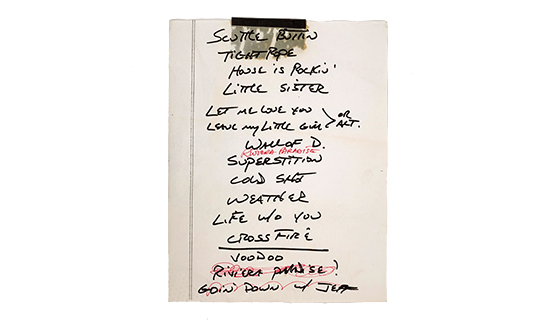 SCUTTLE BUTTIN
TIGHT ROPE
HOUSE IS ROCKIN'
LITTLE SISTER
LET ME LOVE YOU
LEAVE MY LITTLE GIRL > OR ALT.
WALL OF D.
RIVIERA PARADISE
SUPERSTITION
COLD SHOT
WEATHER
LIFE W/O YOU
CROSSFIRE
VOODOO
RIVIERA PARADISE?
GOIN' DOWN W/ JEFF